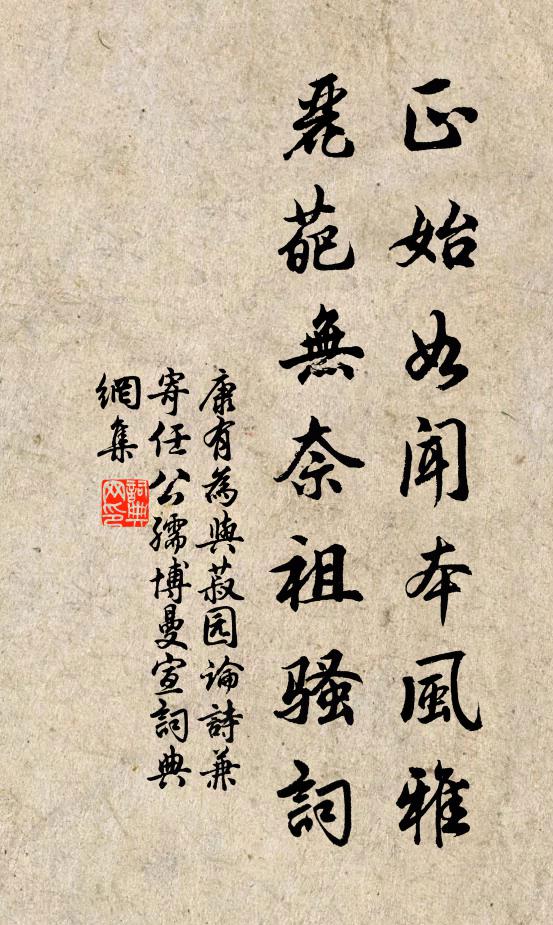 正始如闻本風雅
麗葩無奈祖騷詞
康有為與菽园論詩兼
寄任公孺博曼宣詞典
網集
詞典網印